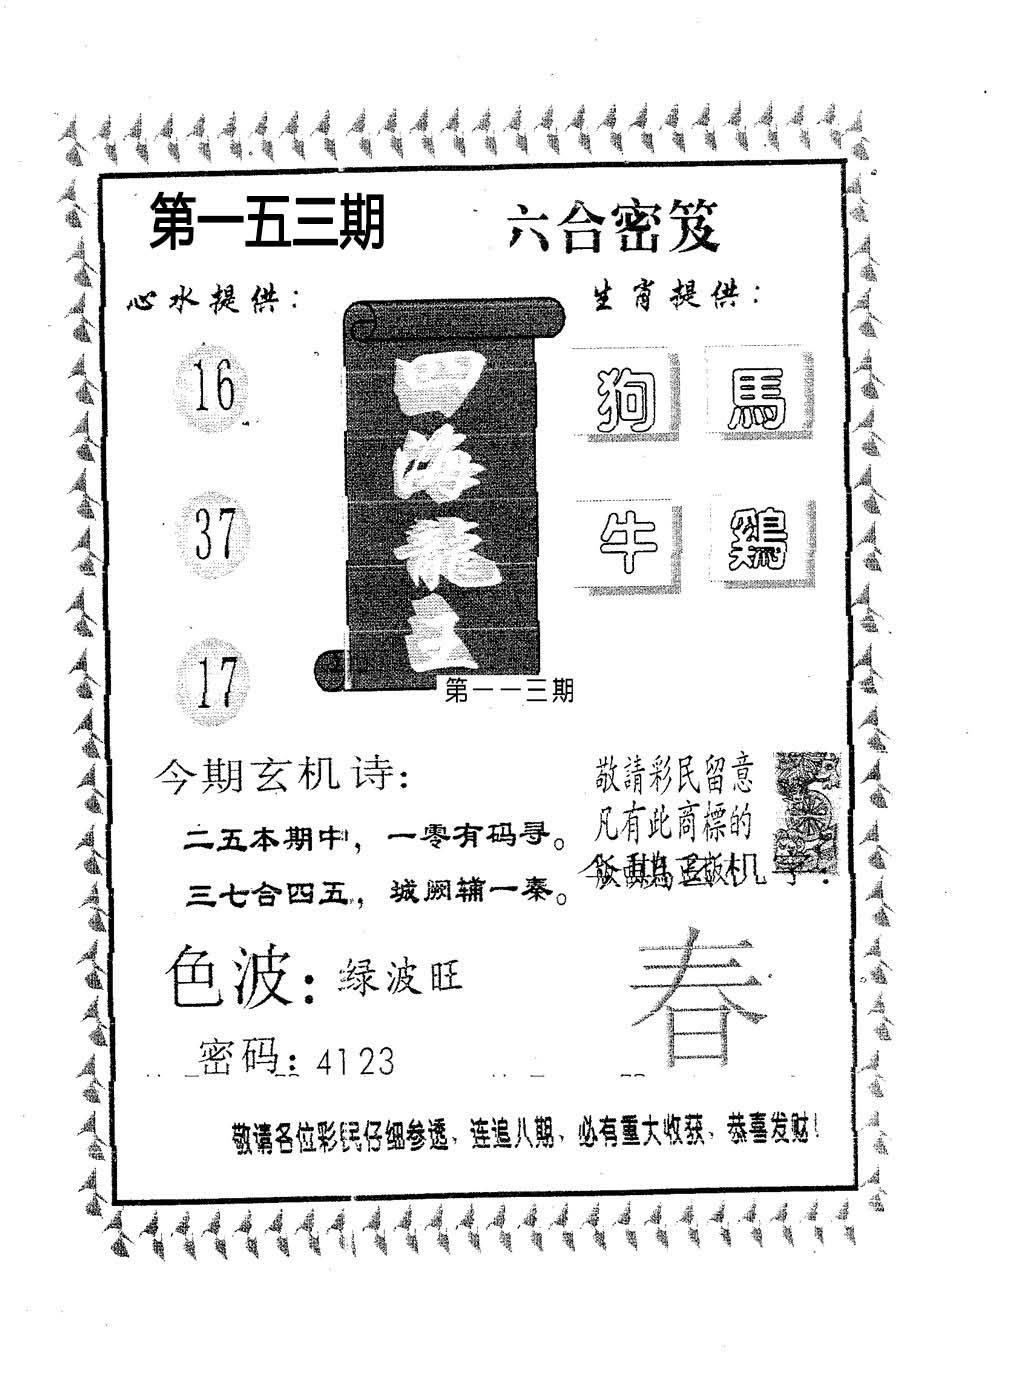 第一五三期
六合密笈
心水提供：
生肖提供：
16
37
17
四海龍王
狗 馬
牛 鷄
第一一三期
今期玄机诗：
二五本期中，一零有码寻。
三七合四五，城阙辅一秦。
敬請彩民留意
凡有此商標的
色波：绿波旺
密码：4123
春
敬请各位彩民仔细参透、连追八期、必有重大收获、恭喜发财！